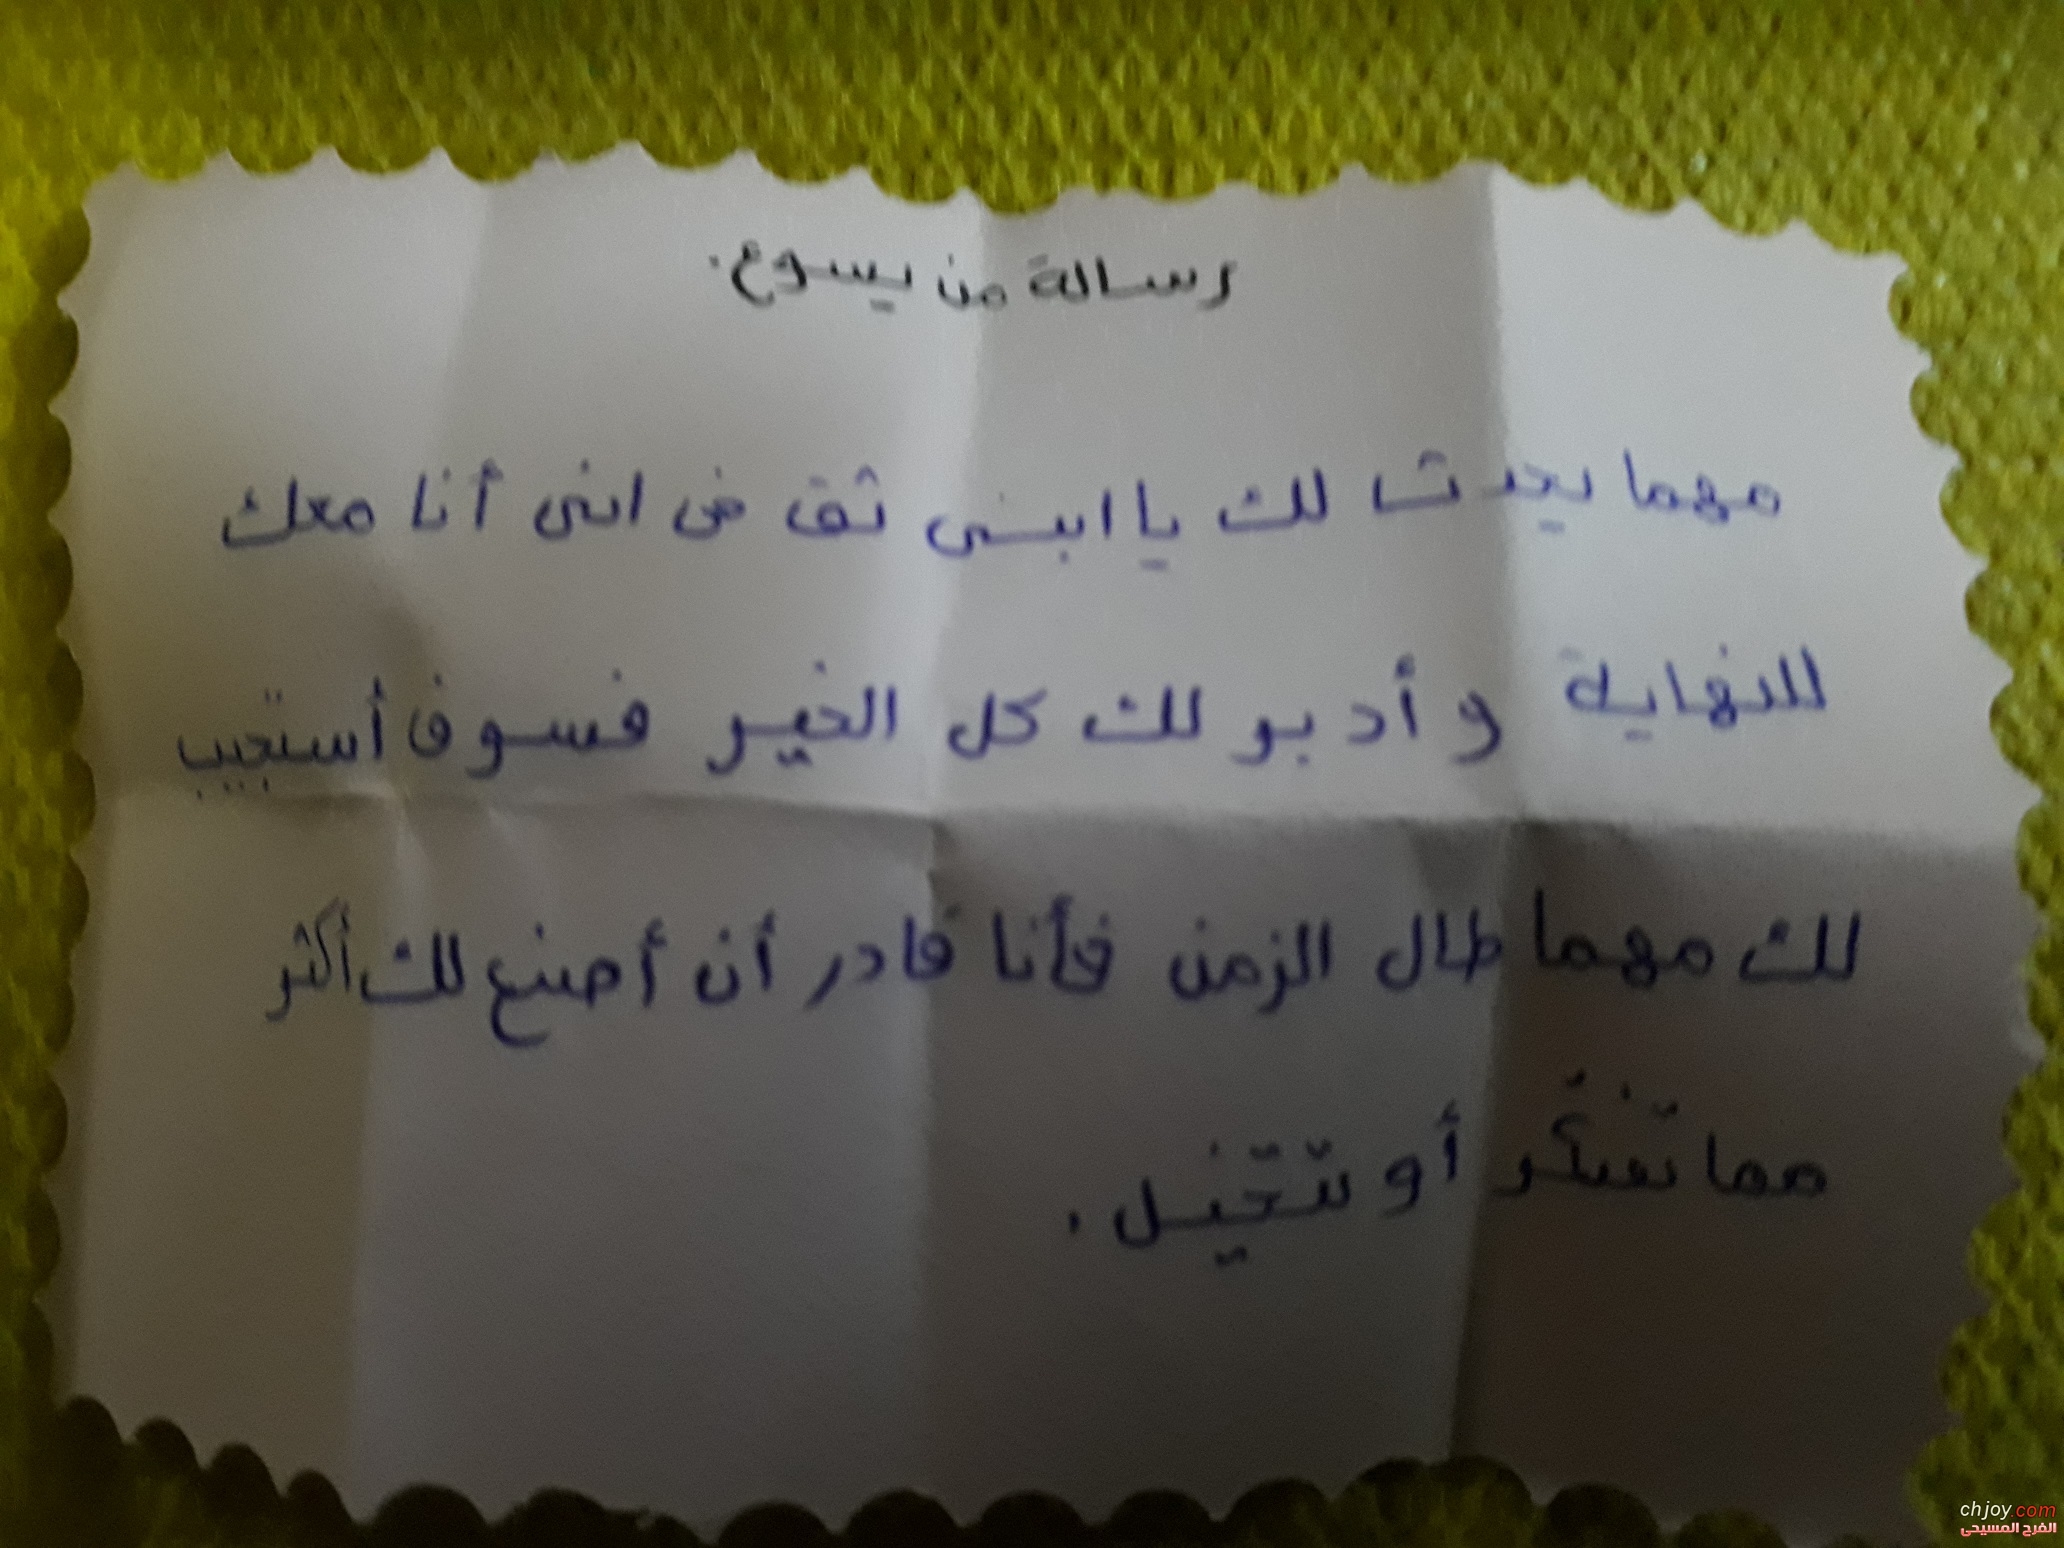 رسالة من يسوع.
مهما يحدث لك يا ابنى ثق فى انى أنا معك
للنهاية و أدبر لك كل الخير فسوف أستجيب
لك مهما طال الزمن فأنا قادر أن أصنع لك أكثر
مما تفتكر أو تتخيل.
chjoy.com
الفرح المسيحى